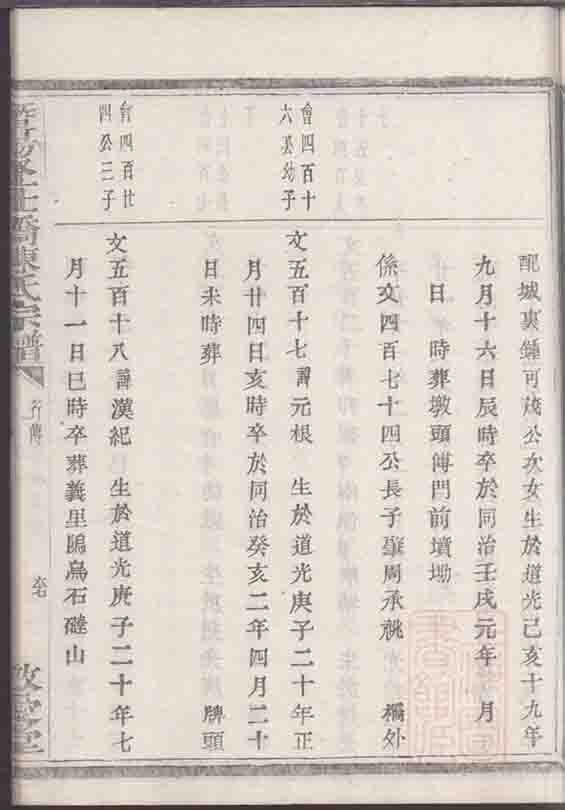 配城裏鍾可茂公次女生於道光己亥十九年
九月十六日辰時卒於同治壬戌元年 月
日 時葬墩頭傅門前墳坳
係文四百七十四公長子肇周承祧 橋外
會四百十
六公幼子
文五百十七諱元根 生於道光庚子二十年正
月廿四日亥時卒於同治癸亥二年四月二十
日未時葬 牌頭
會四百廿
四公三子
文五百十八諱漢紀 生於道光庚子二十年七
月十一日巳時卒葬義里陽烏石磋山
橋陳氏宗譜
行傳